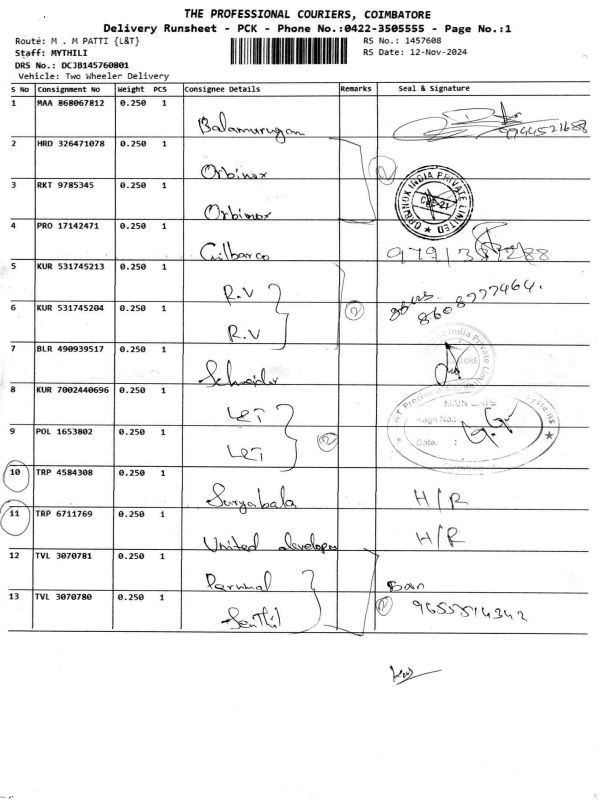 THE PROFESSIONAL COURIERS, COIMBATORE
Delivery Runsheet - PCK - Phone No.:0422-3505555 - Page No.:1
Route: M . M PATTI {L&T} RS No.: 1457608
Staff: MYTHILI RS Date: 12-Nov-2024
DRS No.: DCJB145760801
Vehicle: Two Wheeler Delivery
S No Consignment No Weight PCS Consignee Details Remarks Seal & Signature
1 MAA 868067812 0.250 1 Balamurugan 9744521688
2 HRD 326471078 0.250 1 Orbinox 2
3 RKT 9785345 0.250 1 Orbinox INDIA PRIVATE LIMITED
4 PRO 17142471 0.250 1 Gilbarco
5 KUR 531745213 0.250 1 R.V
6 KUR 531745204 0.250 1 R.V 2 8608777464.
7 BLR 490939517 0.250 1 Schneider India Private
8 KUR 7002440696 0.250 1 L&T MAIN GATE
9 POL 1653802 0.250 1 L&T 2 Date. :
10 TRP 4584308 0.250 1 Suryabala H/R
11 TRP 6711769 0.250 1 United develope H/R
12 TVL 3070781 0.250 1 Perumal
13 TVL 3070780 0.250 1 Senthil 2